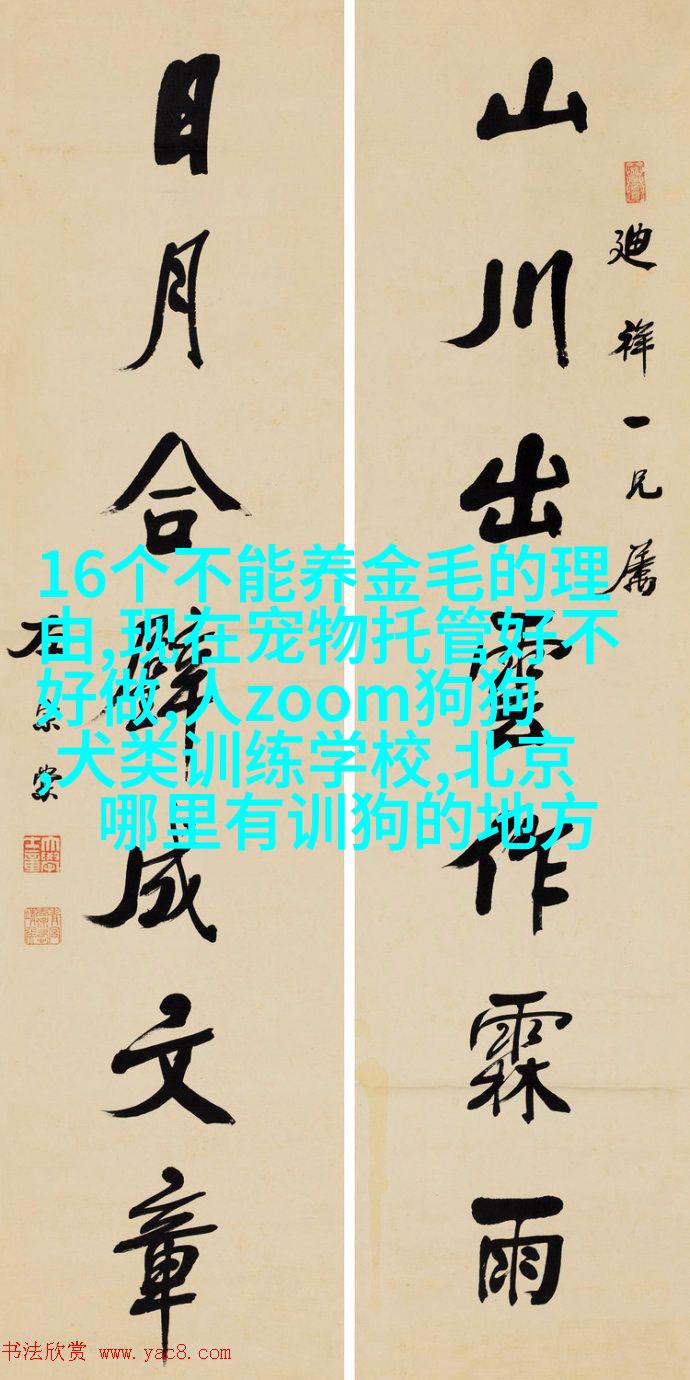 山川出雲作霖雨
廸祥一兄属
日月合璧成文章
左宗棠
16个不能养金毛的理
由,现在宠物托管好不
好做,人zoom狗狗
,犬类训练学校,北京
哪里有训狗的地方
书法欣赏 www.yac8.com